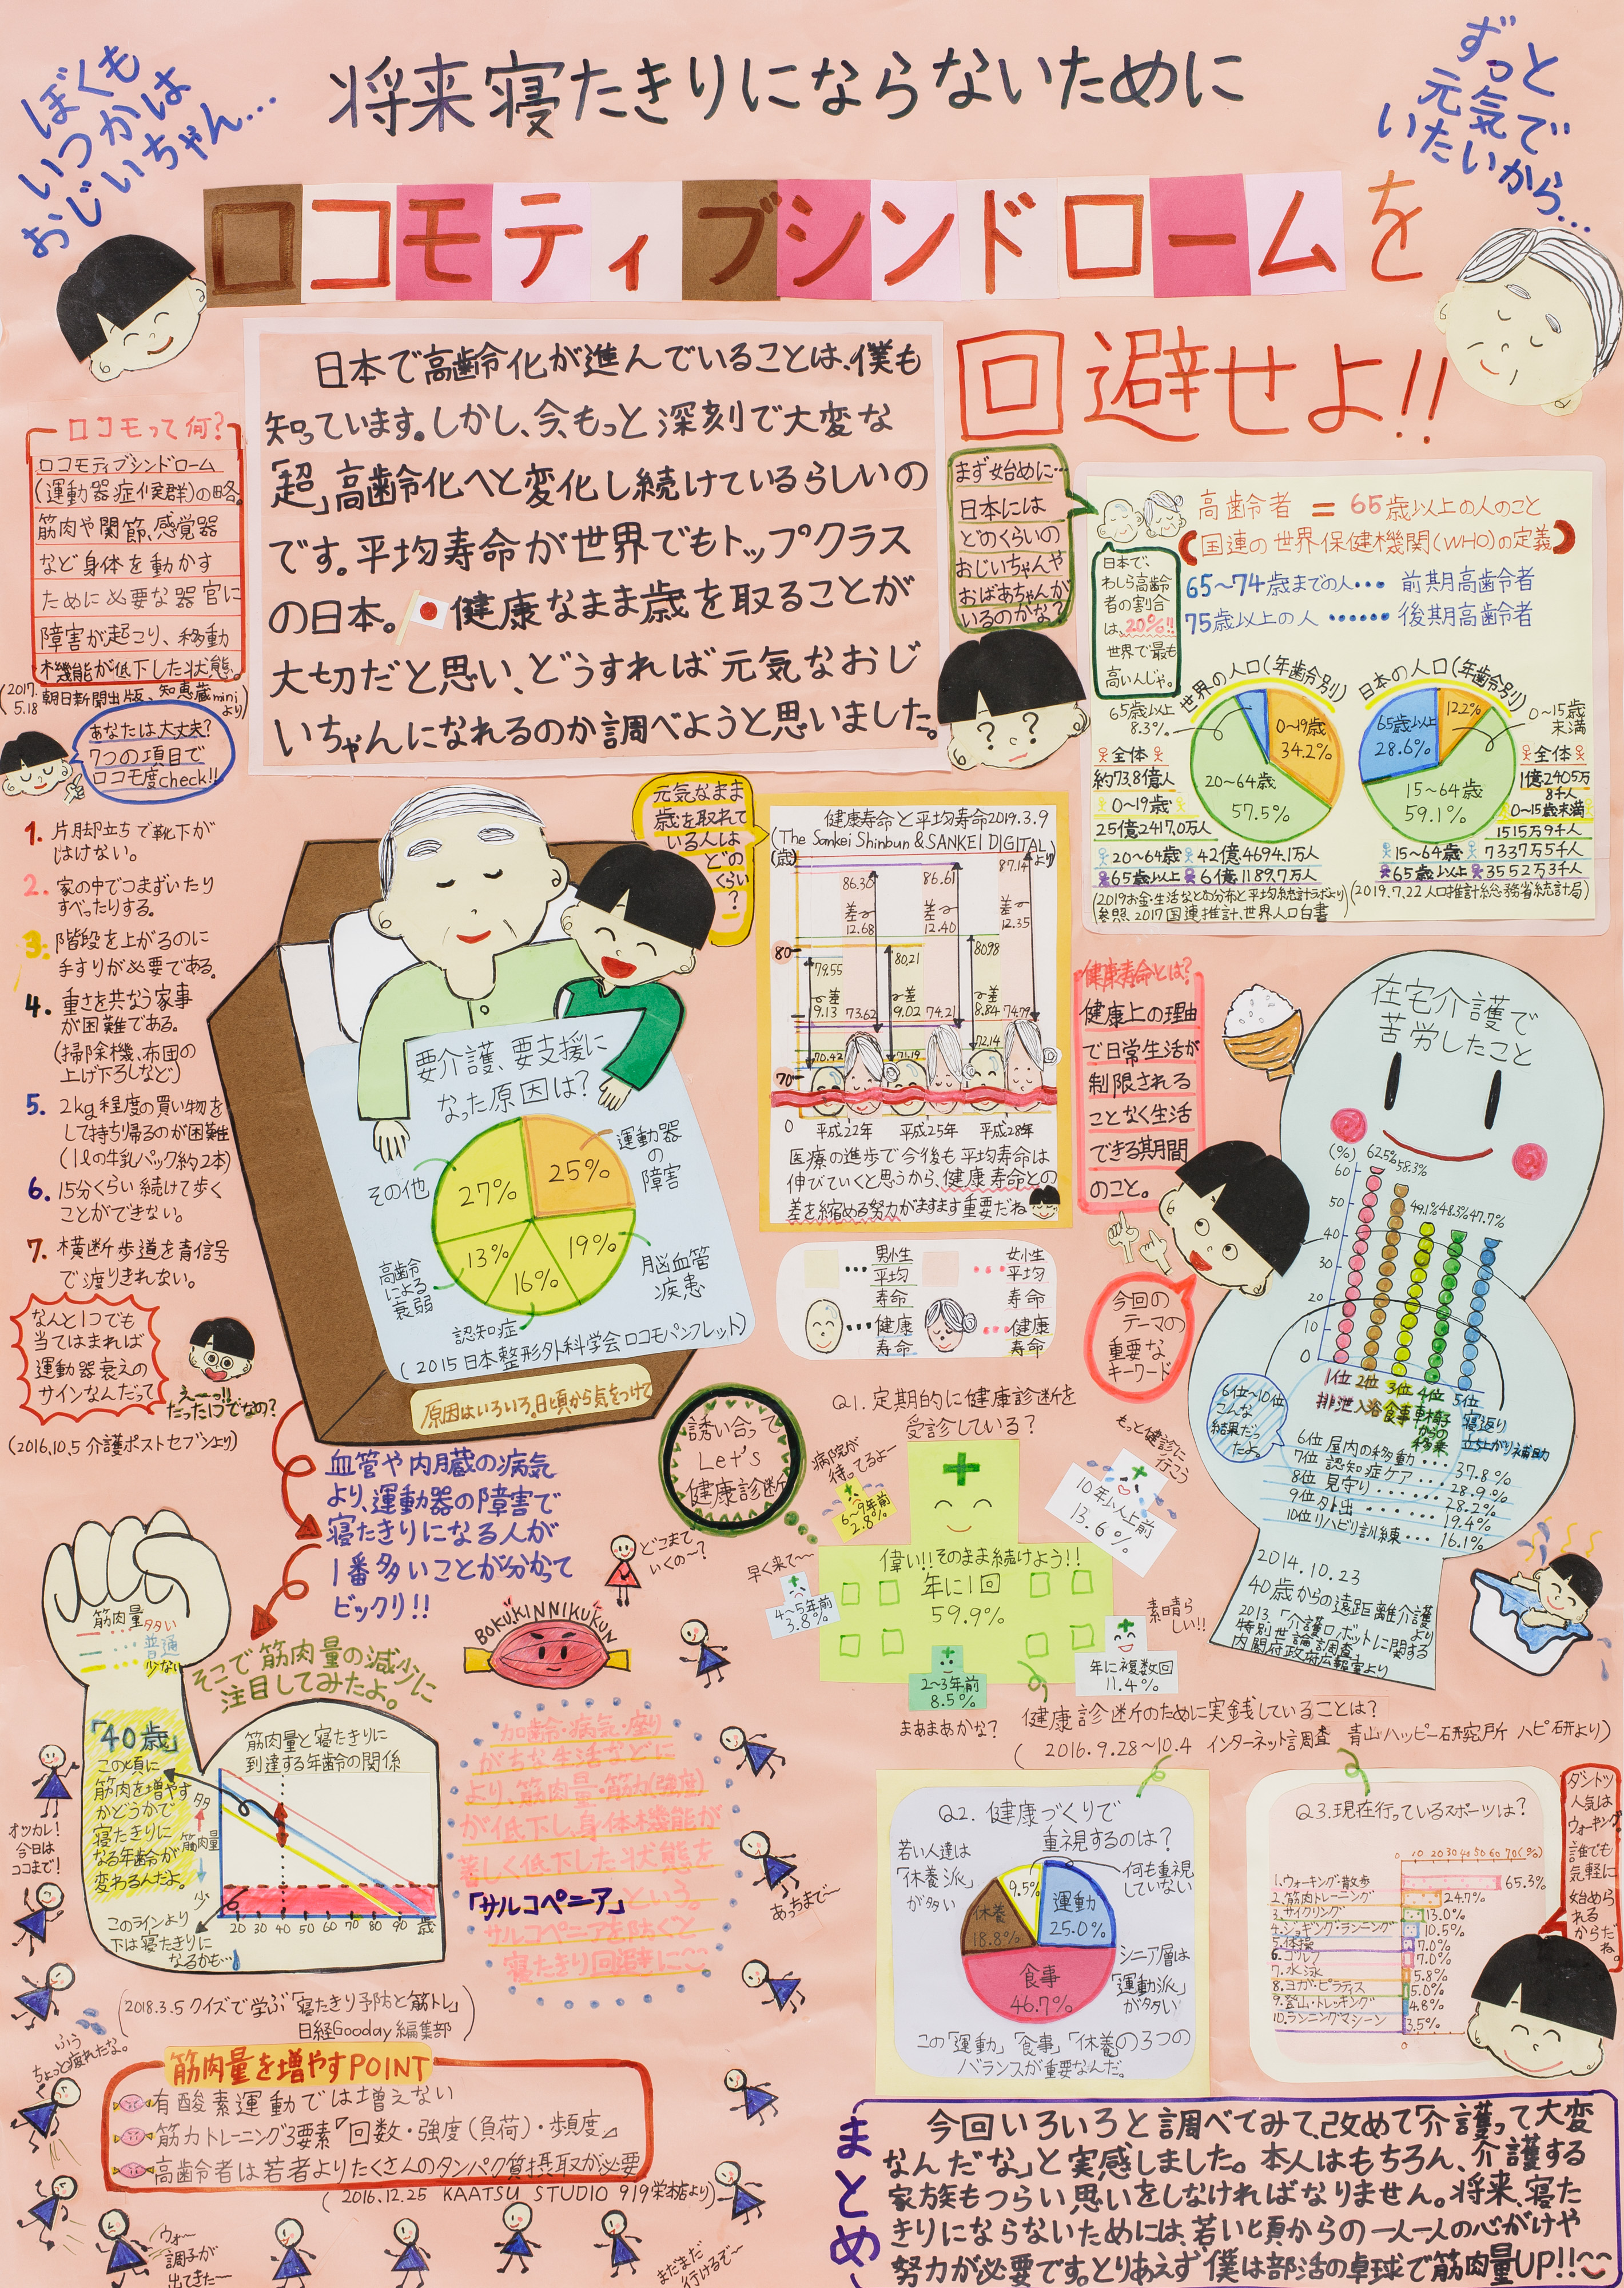 ぼくも
いつかは
おじいちゃん…
将来寝たきりにならないために
ずっと
元気で
いたいから…
ロコモティブシンドロームを
回避せよ!!
日本で高齢化が進んでいることは、僕も
知っています。しかし、今、もっと深刻で大変な
「超」高齢化へと変化し続けているらしいの
です。平均寿命が世界でもトップクラス
の日本。健康なまま歳を取ることが
大切だと思い、どうすれば元気なおじ
いちゃんになれるのか調べようと思いました。
ロコモって何?
ロコモティブシンドローム
(運動器症候群)の略。
筋肉や関節、感覚器
など身体を動かす
ために必要な器官に
障害が起こり、移動
機能が低下した状態。
(2017.5.18 朝日新聞出版、知恵蔵miniより)
あなたは大丈夫?
7つの項目で
ロコモ度check!!
1. 片脚立ちで靴下が
はけない。
2. 家の中でつまずいたり
すべったりする。
3. 階段を上がるのに
手すりが必要である。
4. 重さを共なう家事
が困難である。
(掃除機、布団の
上げ下ろしなど)
5. 2kg程度の買い物を
して持ち帰るのが困難
(1ℓの牛乳パック約2本)
6. 15分くらい続けて歩く
ことができない。
7. 横断歩道を青信号
で渡りきれない。
なんと1つでも
当てはまれば
運動器衰えの
サインなんだって
えーっ!!
だった1つでなの?
(2016.10.5 介護ポストセブンより)
まず始めに…
日本には
どのくらいの
おじいちゃんや
おばあちゃんが
いるのかな?
高齢者=65歳以上の人のこと
(国連の世界保健機関(WHO)の定義)
65~74歳までの人… 前期高齢者
75歳以上の人…… 後期高齢者
日本で、
わしら高齢
者の割合
は、20%!!
世界で最も
高いんじゃ。
世界の人口(年齢別)
65歳以上
8.3%
0~19歳
34.2%
20~64歳
57.5%
全体
約73.8億人
0~19歳
25億2417.0万人
20~64歳 42億4694.1万人
65歳以上 6億1189.7万人
(2019お金・生活などの分布と平均統計ラボより)
参照 2017国連推計、世界人口白書
日本の人口(年齢別)
65歳以上
28.6%
12.2%
0~15歳
未満
15~64歳
59.1%
全体
1億2405万
8千人
0~15歳未満
1515万9千人
15~64歳 7337万5千人
65歳以上 3552万3千人
(2019.7.22 人口推計総務省統計局)
元気なまま
歳を取れて
いる人は
どの
くらい?
健康寿命と平均寿命2019.3.9
(The Sankei Shinbun & SANKEI DIGITALより)
(歳)
80
70
0
79.55
差
9.13
70.42
86.30
差
12.68
73.62
80.21
差
9.02
71.19
86.61
差
12.40
74.21
80.98
差
8.84
72.14
87.14
差
12.35
74.79
平成22年 平成25年 平成28年
医療の進歩で今後も平均寿命は
伸びていくと思うから、健康寿命との
差を縮める努力がますます重要だね
男性
平均
寿命
健康
寿命
女性
平均
寿命
健康
寿命
健康寿命とは?
健康上の理由
で日常生活が
制限される
ことなく生活
できる期間
のこと。
今回の
テーマの
重要な
キーワード
要介護、要支援に
なった原因は?
運動器
の
障害
25%
脳血管
疾患
19%
認知症
16%
高齢
による
衰弱
13%
その他
27%
(2015日本整形外科学会ロコモパンフレット)
原因はいろいろ。日頃から気をつけて
血管や内臓の病気
より、運動器の障害で
寝たきりになる人が
1番多いことが分かって
ビックリ!!
在宅介護で
苦労したこと
(%)
60
50
40
30
20
10
0
62.5% 58.3% 49.1% 48.3% 47.7%
1位 2位 3位 4位 5位
排泄 入浴 食事 車椅子からの移乗 寝返り立ち上がり補助
6位~10位
こんな
結果だっ
たよ。
6位 屋内の移動… 37.8%
7位 認知症ケア… 28.9%
8位 見守り…… 28.2%
9位 外出…… 19.4%
10位 リハビリ訓練… 16.1%
2014.10.23
40歳からの遠距離介護より
2013.「介護ロボットに関する
特別世論調査」
内閣府政府広報室より
誘い合って
Let's
健康診断
Q1. 定期的に健康診断を
受診している?
病院が
待ってるよー
6~9年前
2.8%
もっと健診に
行こう
10年以上前
13.6%
早く来て~
4~5年前
3.8%
偉い!!そのまま続けよう!!
年に1回
59.9%
2~3年前
8.5%
まあまあかな?
素晴ら
しい!!
年に複数回
11.4%
健康診断のために実銭していることは?
(2016.9.28~10.4 インターネット調査 青山ハッピー研究所 ハピ研より)
Q2. 健康づくりで
重視するのは?
若い人達は
「休養派」
が多い
休養
18.8%
9.5%
何も重視
していない
運動
25.0%
食事
46.7%
シニア層は
「運動派」
が多い
この「運動」「食事」「休養」の3つの
バランスが重要なんだ。
Q3. 現在行っているスポーツは?
0 10 20 30 40 50 60 70(%)
1.ウォーキング・散歩 65.3%
2.筋肉トレーニング 24.7%
3.サイクリング 13.0%
4.ジョギング・ランニング 10.5%
5.体操 7.0%
6.ゴルフ 7.0%
7.水泳 5.8%
8.ヨガ・ピラティス 5.0%
9.登山・トレッキング 4.8%
10.ランニングマシーン 3.5%
ダントツ
人気は
ウォーキング。
誰でも
気軽に
始めら
れる
からだ
ね。
筋肉量
多い
普通
少ない
そこで筋肉量の減少に
注目してみたよ。
「40歳」
この頃に
筋肉を増やす
かどうかで
寝たきりに
なる年齢が
変わるんだよ。
このラインより
下は寝たきりに
なるかも…
筋肉量と寝たきりに
到達する年齢の関係
多
筋肉量
少
20 30 40 50 60 70 80 90 歳
(2018.3.5 クイズで学ぶ「寝たきり予防と筋トレ」
日経Gooday編集部)
BOKUKINNIKUKUN
どこまで
いくの~?
加齢・病気・座り
がちな生活などに
より、筋肉量・筋力(強度)
が低下し、身体機能が
著しく低下した状態を
「サルコペニア」という。
サルコペニアを防ぐと
寝たきり回避に
あっちまで~
オツカレ!
今日は
ココまで!
ふぅ
ちょっと疲れたな。
筋肉量を増やすPOINT
有酸素運動では増えない
筋力トレーニング3要素『回数・強度(負荷)・頻度』
高齢者は若者よりたくさんのタンパク質摂取が必要
(2016.12.25 KAATSU STUDIO 919栄本店より)
ウォ~
調子が
出てきた~
まだまだ
行けるぞ~
まとめ
今回いろいろと調べてみて、改めて「介護って大変
なんだな」と実感しました。本人はもちろん、介護する
家族もつらい思いをしなければなりません。将来、寝た
きりにならないためには、若い頃からの一人一人の心がけや
努力が必要です。とりあえず僕は部活の卓球で筋肉量UP!!